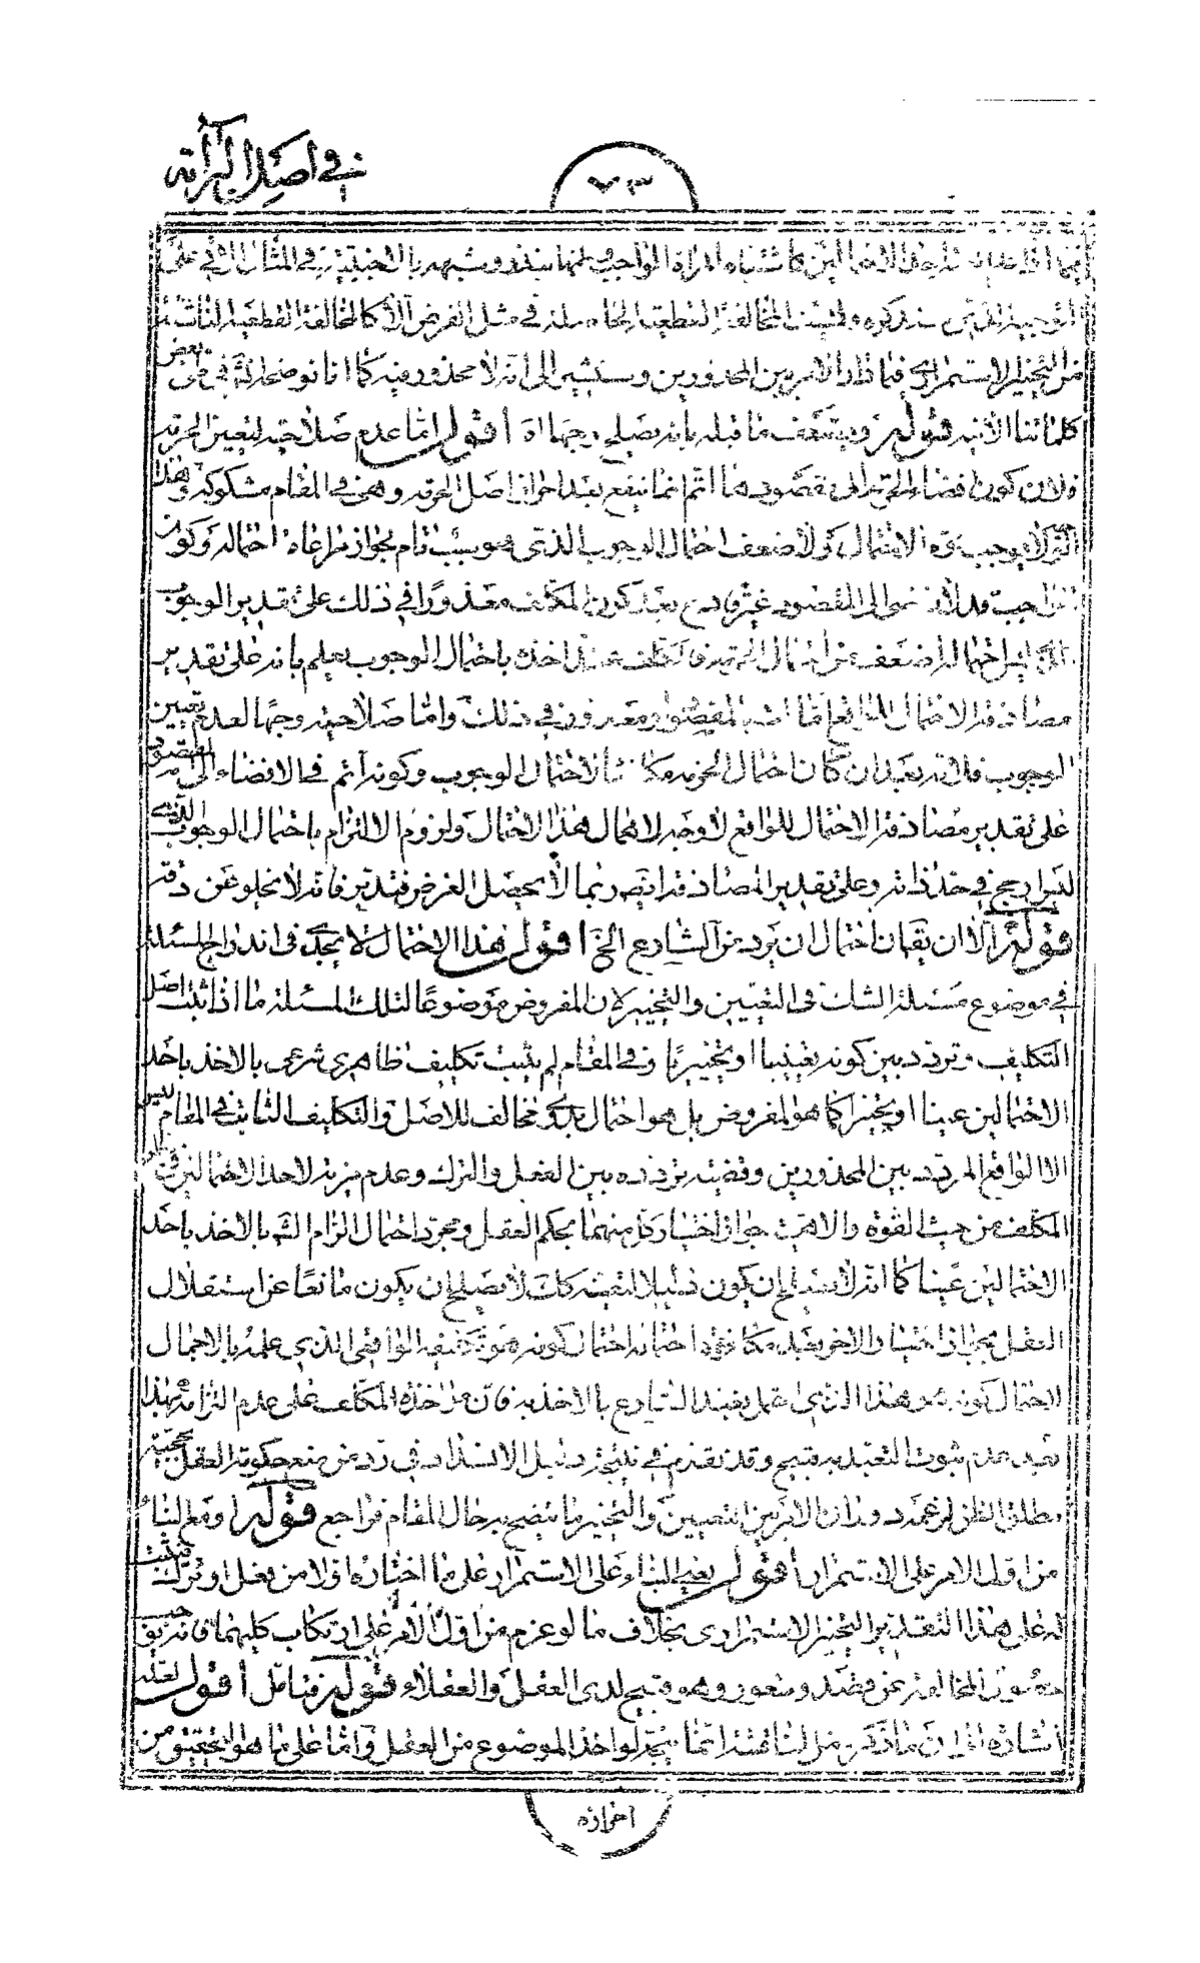 في اصل البرائة
٧٣
احد الاحتمالين كاشتباه المراة الواجب وطئها بنذر وشبهه بالاجنبية في المثال الثاني على
سنذكره وليست المخالفة القطعية الحاصلة في مثل الفرض الا كالمخالفة القطعية الناشئة
من التخيير الاستمراري فيما دار الامر بين المحذورين وستشير الى انه لا محذور فيه كما انا نوضحه في بعض
كلماتنا الاتية قوله ويضعف ما قبله بانه يصلح وجها اه اقول اما عدم صلاحيته لتعيين الحرمة
فلان كون افضاء الحرمة الى مقصودها اتم انما ينفع بعد احراز اصل الحرمة وهي في المقام مشكوكة وهذا
لا يوجب قوة الاحتمال ولا ضعف احتمال الوجوب الذي هو سبب تام لجواز مراعاة احتماله وكون
الى المقصود غير قادح بعد كون المكلف معذورا في ذلك على تقدير الوجوب
احتماله اضعف من احتمال الحرمة فالمكلف عند اخذه باحتمال الوجوب يعلم بانه على تقدير
مصادفة الاحتمال للواقع المقصود ومعذور في ذلك واما صلاحيته وجها لعدم تعيين
الوجوب فلانه بعد ان كان احتمال الحرمة مكافئا لاحتمال الوجوب وكونه اتم في الافضاء الى المقصود
على تقدير مصادفة الاحتمال للواقع لا وجه لاهمال هذا الاحتمال ولزوم الالتزام باحتمال الوجوب الذي
ليس ارجح في حد ذاته وعلى تقدير المصادفة ايضا ربما لا يحصل الغرض فتدبر فانه لا يخلو عن دقة
قوله الا ان يقال ان احتمال ان يرد من الشارع الخ اقول هذا الاحتمال لا يجدي في اندراج المسئلة
في موضوع مسئلة الشك في التعيين والتخيير لان المفروض موضوعا لتلك المسئلة ما اذا ثبت اصل
التكليف وتردد بين كونه تعيينيا او تخييريا وفي المقام لم يثبت تكليف ظاهري شرعي بالاخذ باحد
الاحتمالين عينا او تخييرا كما هو المفروض بل هو احتمال بدوي مخالف للاصل والتكليف الثابت في المقام ليس
الا الواقع المردد بين المحذورين وقضية تردده بين الفعل والترك وعدم مزية لاحد الاحتمالين في نظر
المكلف من حيث القوة والاهمية جواز اختيار كل منهما بحكم العقل ومجرد احتمال الزام الشارع بالاخذ باحد
الاحتمالين عينا كما انه لا يصلح ان يكون دليلا لتعينه كك لا يصلح ان يكون مانعا عن استقلال
العقل بجواز اختيار الاخر بعد مكافئة احتماله احتمال كونه هو تكليفه الواقعي الذي علمه بالاجمال
لاحتمال كونه هو هذا الذي يحتمل تعبد الشارع بالاخذ به فان مؤاخذة المكلف على عدم التزامه بهذا
بعد عدم ثبوت التعبد به قبيح وقد تقدم في نتيجة دليل الانسداد في رد من منع حكومة العقل بحجية
مطلق الظن لزعمه دوران الامر بين التعيين والتخيير ما يتضح به حال المقام فراجع قوله او مع البناء
من اول الامر على الاستمرار اقول يعني البناء على الاستمرار على ما اختاره اولا من فعل او ترك فيثبت
له على هذا التقدير التخيير الاستمراري بخلاف ما لو عزم من اول الامر على ارتكاب كليهما تدريجا حيث
المخالفة عن قصد وشعور وهو قبيح لدى العقل والعقلاء قوله فتامل اقول لعله
اشارة الى ان ما ذكر من المناقشة انما يتجه لو اخذ الموضوع من العقل واما على ما هو التحقيق من
احرازه